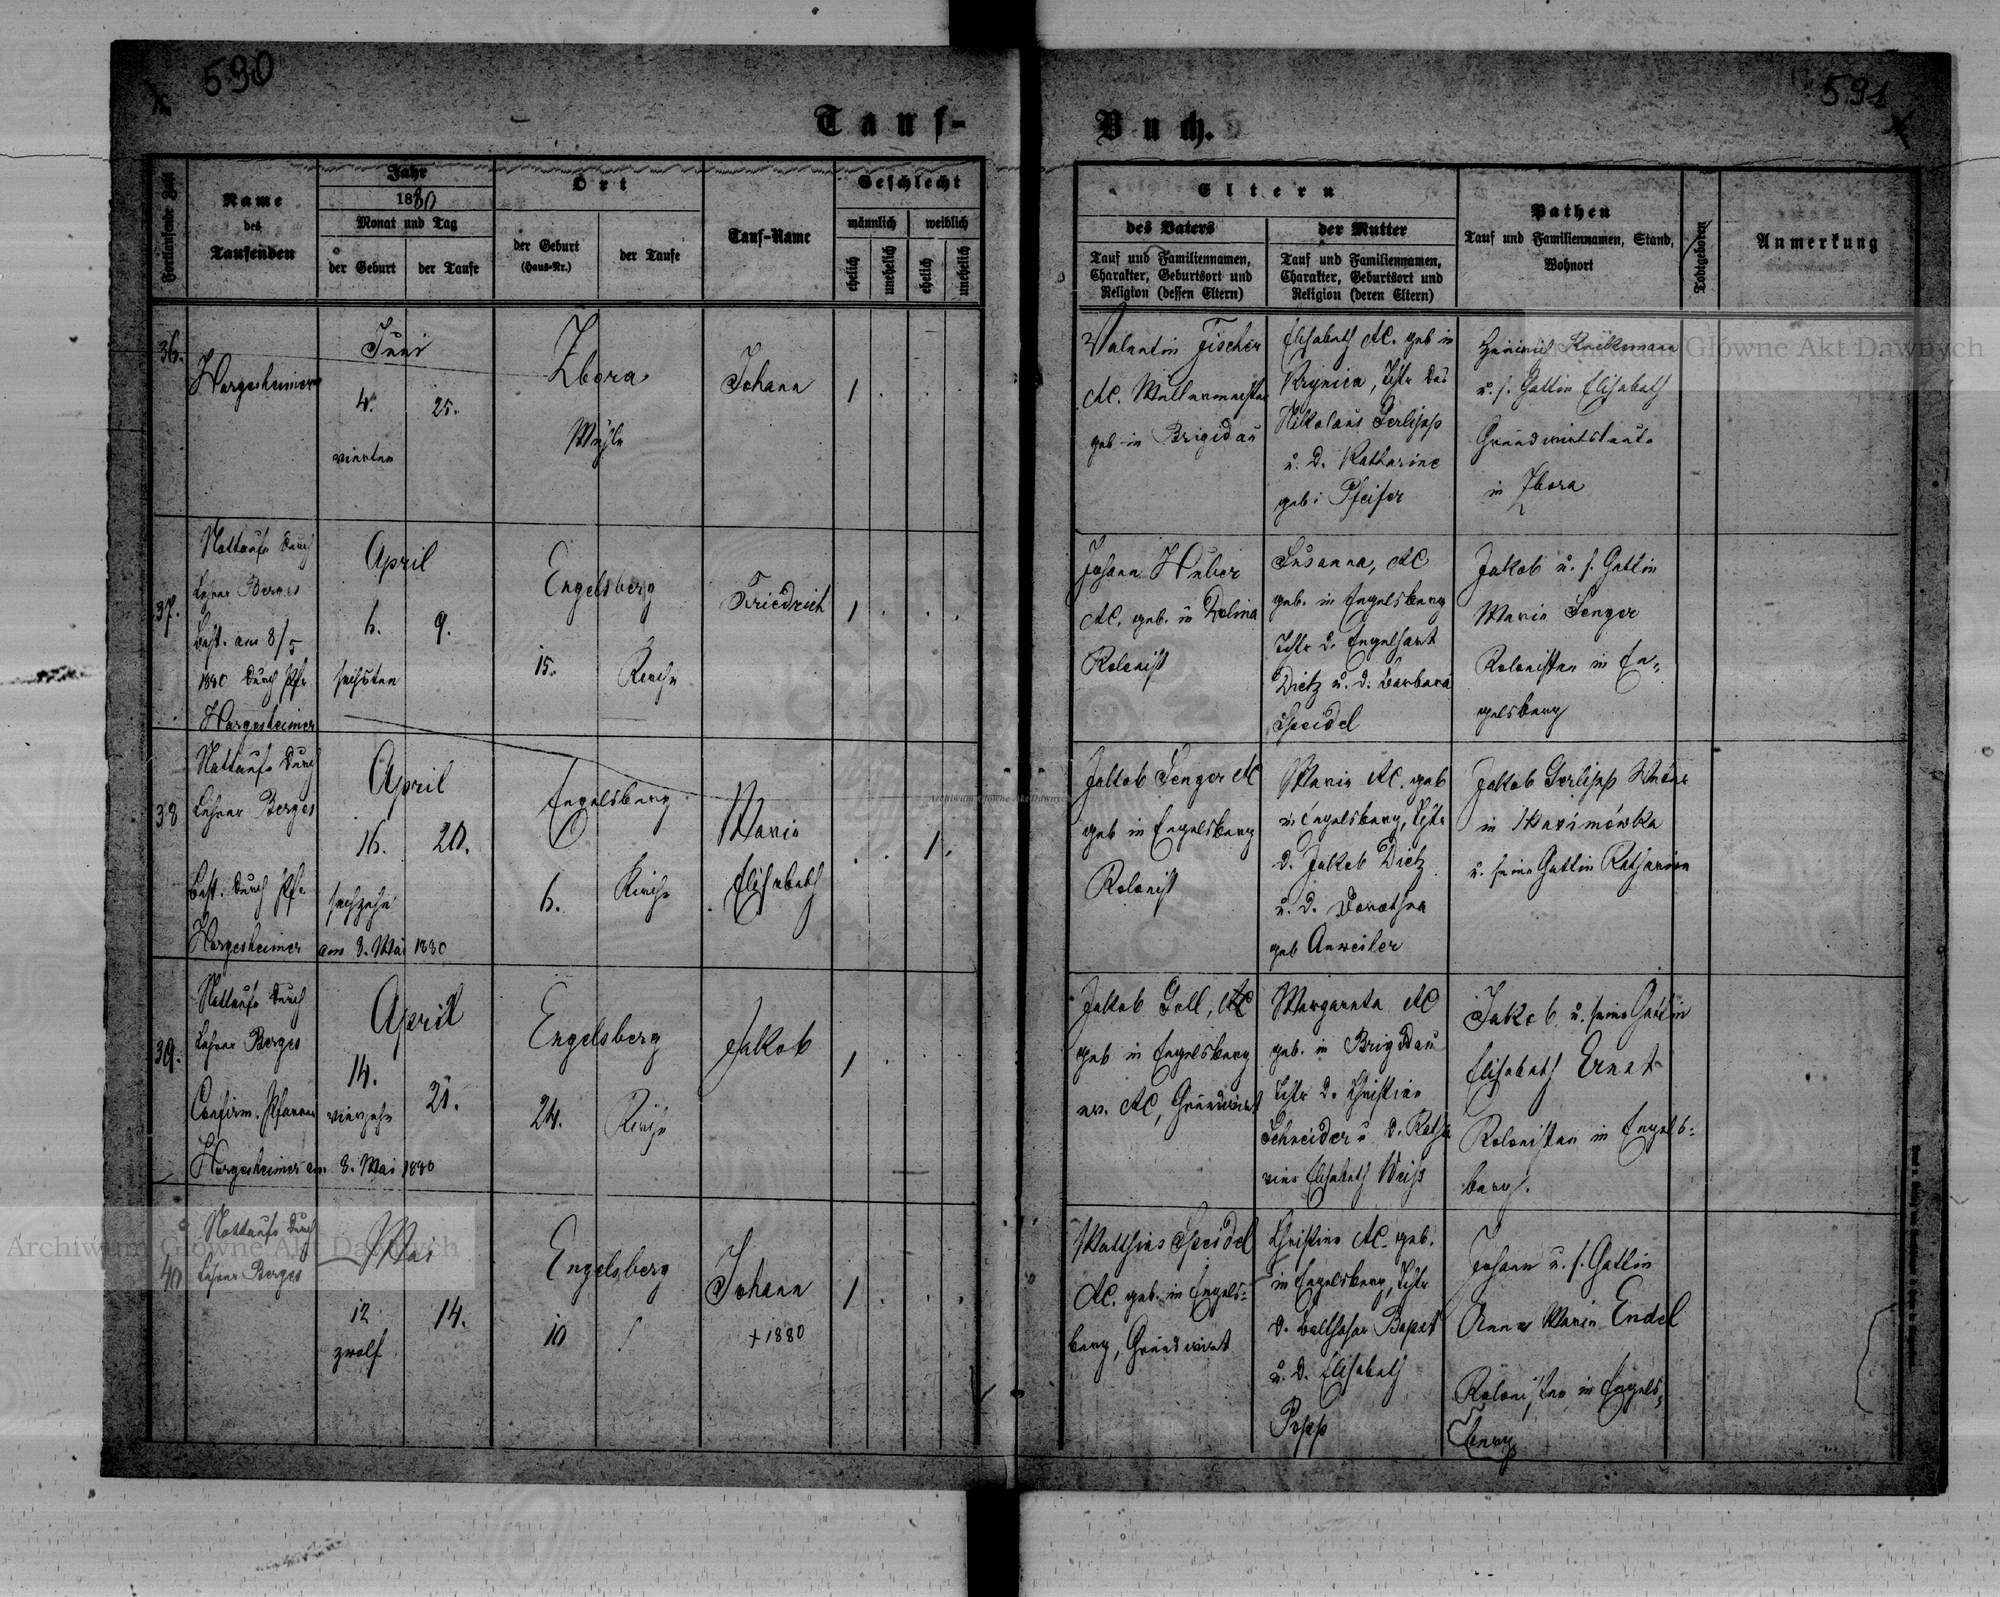 590
591
Tauf-
Buch.
Fortlaufende Zahl
Name
des
Taufenden
Jahr
1880
Monat und Tag
der Geburt
der Taufe
Ort
der Geburt
(Haus-Nr.)
der Taufe
Tauf-Name
Geschlecht
männlich
weiblich
ehelich
unehelich
ehelich
unehelich
Eltern
des Vaters
Tauf und Familiennamen,
Charakter, Geburtsort und
Religion (dessen Eltern)
der Mutter
Tauf und Familiennamen,
Charakter, Geburtsort und
Religion (deren Eltern)
Pathen
Tauf und Familiennamen, Stand,
Wohnort
Todtgeboren
Anmerkung
36.
Hargesheimer
Juni
4.
25.
vierten
Zbora
Mühle
Johann
1
Valentin Fischer
AC.
geb in Brigidau
Elisabeth AC. geb in
Krynica, Tchtr des
Nikolaus Gerlipp
u. d. Katharine
geb: Pfeifer
Heinrich
u. s. Gattin Elisabeth
Grundwirtsleute
in Zbora
37.
Nottaufe durch
Lehrer Berges
best. am 8/5
1880 durch Pfr
Hargesheimer
April
6.
9.
sechsten
Engelsberg
15.
Kirche
Friedrich
1
Johann Huber
AC. geb. in Dolina
Kolonist
Susanna, AC
geb. in Engelsberg
Tchtr d. Engelhart
Dietz u. d. Barbara
Speidel
Jakob u. s. Gattin
Maria Senger
Kolonisten in En-
gelsberg
38
Nottaufe durch
Lehrer Berges
best. durch Pfr
Hargesheimer am 8. Mai 1880
April
16.
20.
sechzehn
Engelsberg
6.
Kirche
Maria
Elisabeth
1.
Jakob Senger AC
geb in Engelsberg
Kolonist
Maria AC. geb
in Engelsberg, Tchtr
d. Jakob Dietz
u. d. Dorothea
geb Anweiler
Jakob Gerlipp
in Maximówka
u. seine Gattin Katharina
39.
Nottaufe durch
Lehrer Berges
Confirm. Pfarrer
Hargesheimer am 8. Mai 1880
April
14.
21.
vierzehn
Engelsberg
24.
Kirche
Jakob
1
Jakob Goll, AC
geb in Engelsberg
ev. AC, Grundwirt
Margareta AC
geb. in Brigidau
Tchtr d. Christian
Schneider u. d. Katha
rine Elisabeth Weiss
Jakob u. seine Gattin
Elisabeth Ernst
Kolonisten in Engels-
berg.
40
Nottaufe durch
Lehrer Berges
Mai
12
14.
zwölf
Engelsberg
10
Johann
+ 1880
1
Matthias Speidel
AC. geb. in Engels-
berg, Grundwirt
Christine AC. geb.
in Engelsberg, Tchtr
d. Balthasar
u. d. Elisabeth
Popp
Johann u. s. Gattin
Anna Maria Endel
Kolonisten in Engels-
berg
Archiwum Główne Akt Dawnych
Archiwum Główne Akt Dawnych
Archiwum Główne Akt Dawnych